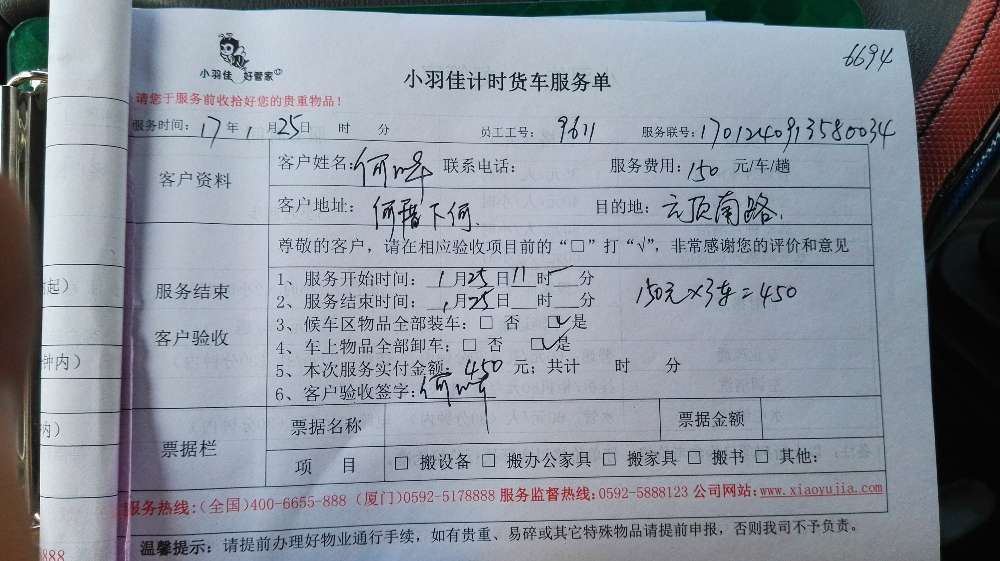 6694
小羽佳 好管家
小羽佳计时货车服务单
请您于服务前收拾好您的贵重物品！
服务时间：17年1月25日 时 分 员工工号：9611 服务联号：1701240913580034
客户资料
客户姓名：何 联系电话： 服务费用：150 元/车/趟
客户地址：何厝下何 目的地：云顶南路
尊敬的客户，请在相应验收项目前的“□”打“√”，非常感谢您的评价和意见
服务结束
客户验收
1、服务开始时间：1月25日11时 分
2、服务结束时间：1月25日 时 分
150元×3车=450
3、候车区物品全部装车：□ 否 □ 是
4、车上物品全部卸车：□ 否 □ 是
5、本次服务实付金额：450 元；共计 时 分
6、客户验收签字：何
票据栏
票据名称 票据金额
项 目 □ 搬设备 □ 搬办公家具 □ 搬家具 □ 搬书 □ 其他：
服务热线：(全国)400-6655-888 (厦门)0592-5178888 服务监督热线：0592-5888123 公司网站：www.xiaoyujia.com
温馨提示：请提前办理好物业通行手续，如有贵重、易碎或其它特殊物品请提前申报，否则我司不予负责。
起）
钟内）
内）
888